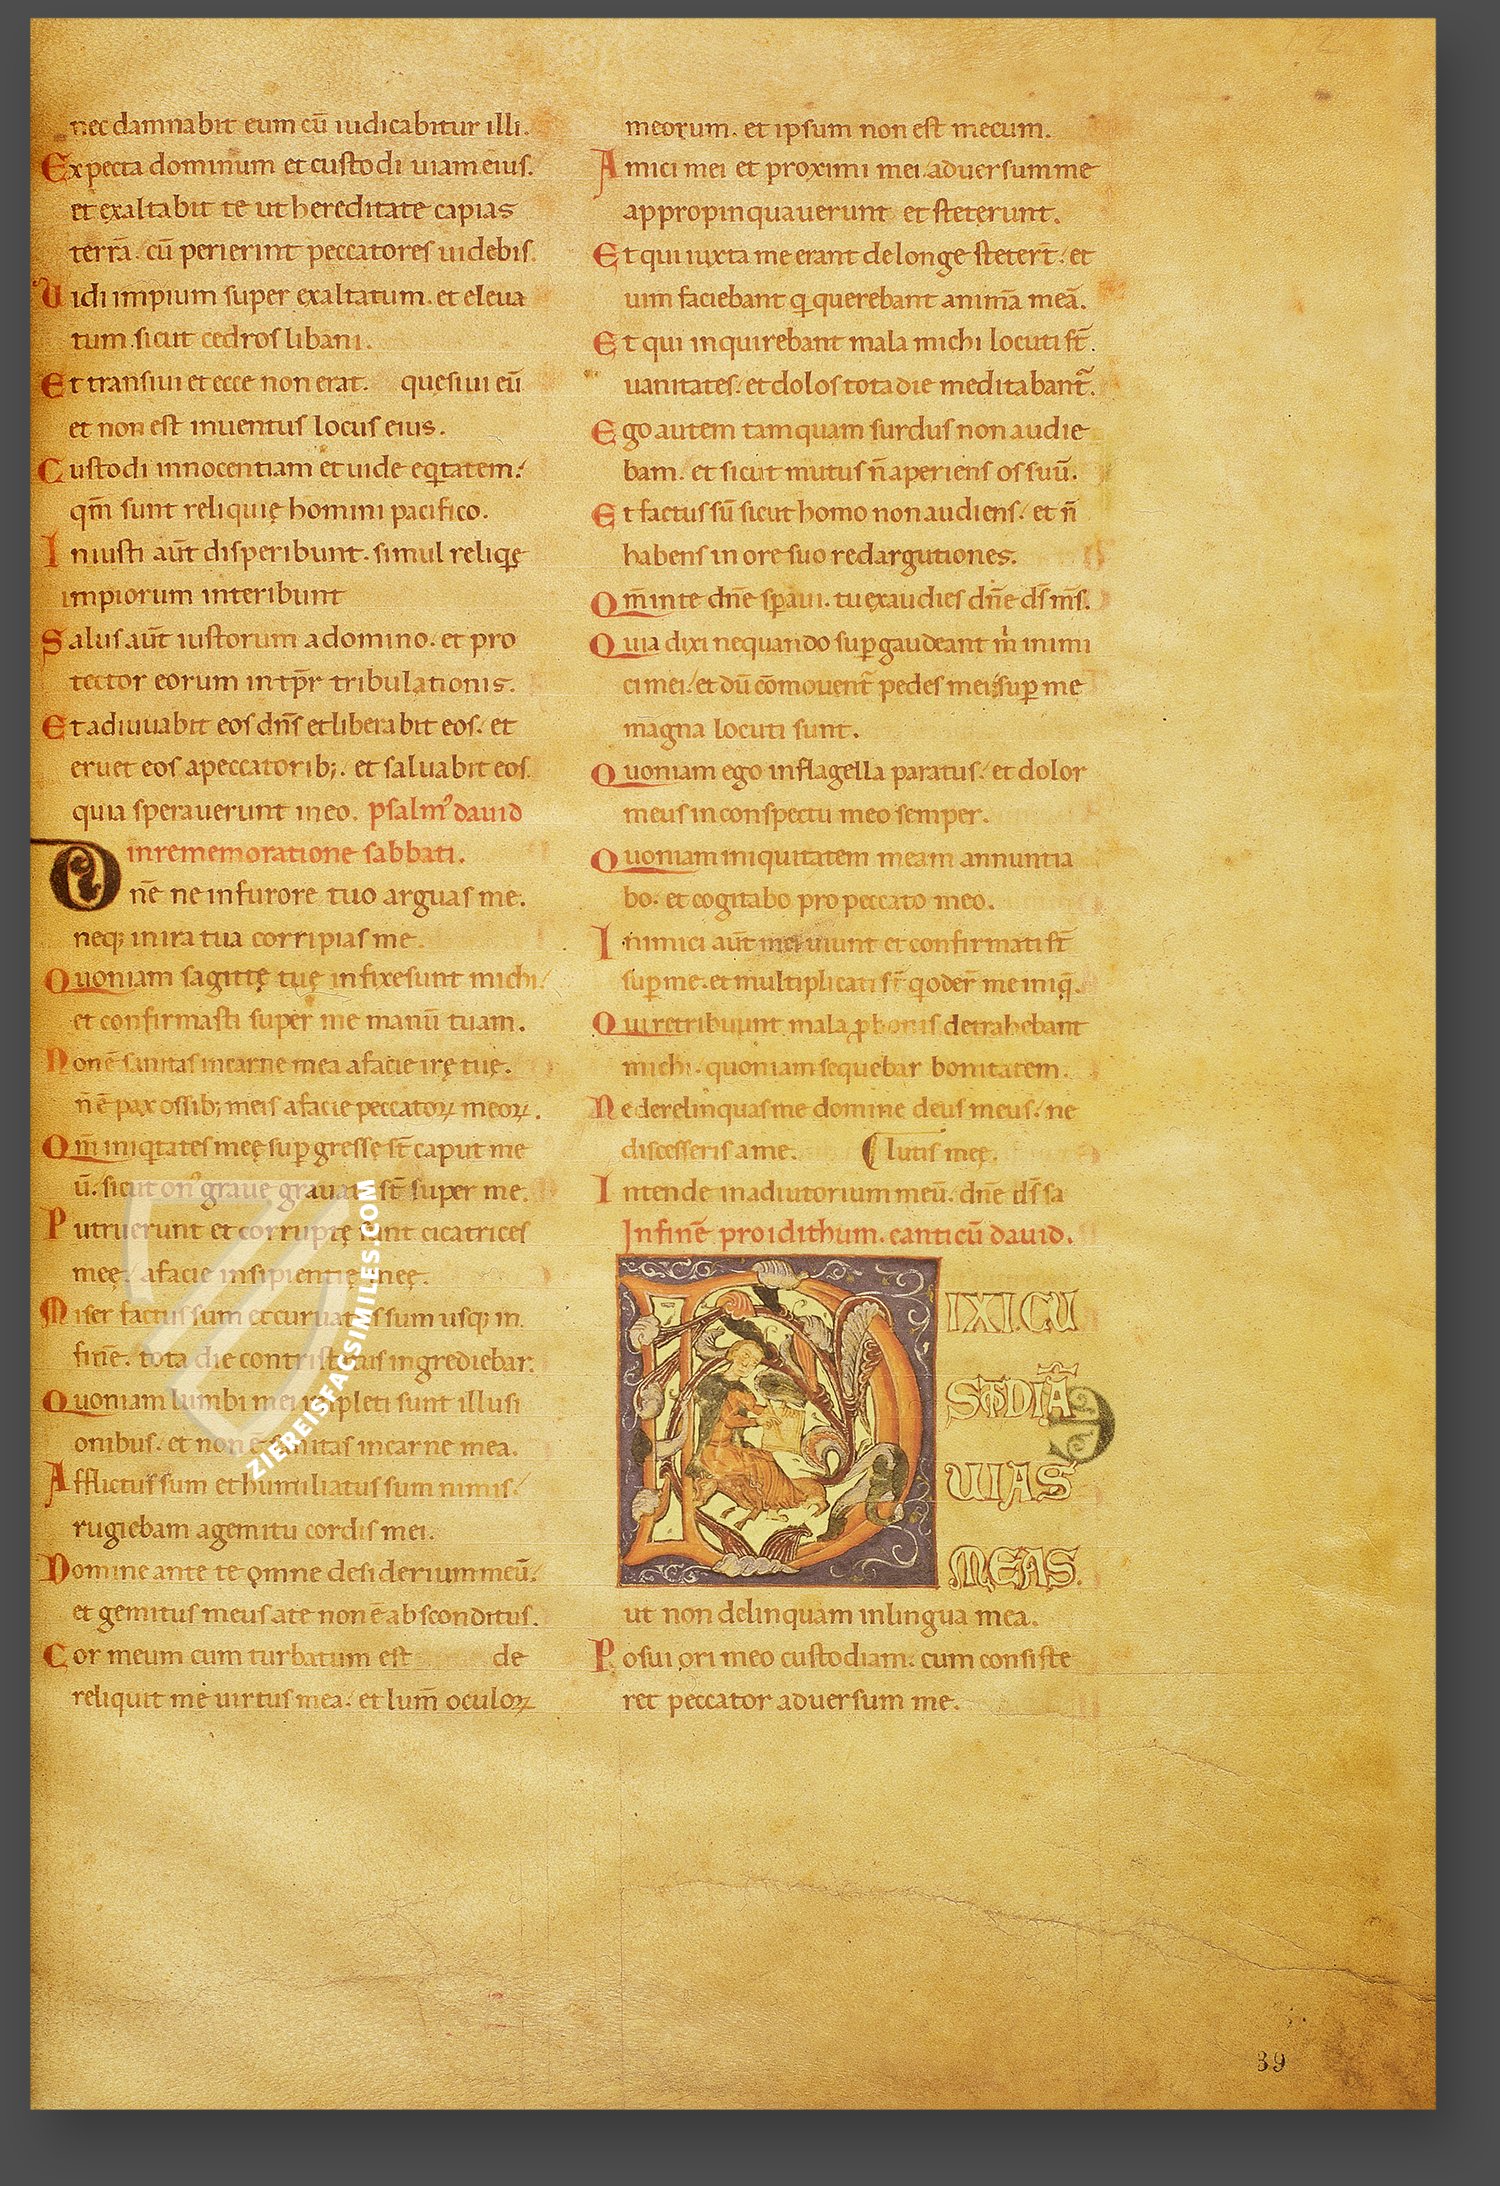 nec damnabit eum cū iudicabitur illi.
Expecta dominum et custodi uiam eius.
et exaltabit te ut hereditate capias
terrā. cū perierint peccatores uidebis.
Uidi impium super exaltatum. et eleua
tum sicut cedros libani.
Et transiui et ecce non erat. quesiui eū
et non est inuentus locus eius.
Custodi innocentiam et uide eq̄tatem.
qm̄ sunt reliquię homini pacifico.
Iniusti aūt disperibunt. simul reliqę
impiorum interibunt
Salus aūt iustorum a domino. et pro
tector eorum in tp̄r tribulationis.
Et adiuuabit eos dn̄s et liberabit eos. et
eruet eos a peccatorib;. et saluabit eos.
quia sperauerunt in eo. psalm᾽ dauid
in rememoratione sabbati.
Dnē ne in furore tuo arguas me.
neq; in ira tua corripias me.
Quoniam sagittę tuę infixe sunt michi.
et confirmasti super me manū tuam.
Non ē sanitas in carne mea a facie irę tuę.
n̄ ē pax ossib; meis a facie peccatoꝝ meoꝝ.
Qm̄ iniq̄tates meę sup̄gresse st̄ caput me
ū. sicut on᾽ graue grauate st̄ super me.
Putruerunt et corruptę sunt cicatrices
meę. a facie insipientię meę.
Miser factus sum et curuatus sum usq; in
finē. tota die contristatus ingrediebar.
Quoniam lumbi mei impleti sunt illusi
onibus. et non ē sanitas in carne mea.
Afflictus sum et humiliatus sum nimis.
rugiebam a gemitu cordis mei.
Domine ante te omne desiderium meū.
et gemitus meus a te non ē absconditus.
Cor meum cum turbatum est de
reliquit me uirtus mea. et lum̄ oculoꝝ
meorum. et ipsum non est mecum.
Amici mei et proximi mei. aduersum me
appropinquauerunt et steterunt.
Et qui iuxta me erant de longe steter̄t. et
uim faciebant q̄ querebant animā meā.
Et qui inquirebant mala michi locuti st̄.
uanitates. et dolos tota die meditabant᷑.
Ego autem tamquam surdus non audie
bam. et sicut mutus n̄ aperiens os suū.
Et factus sū sicut homo non audiens. et n̄
habens in ore suo redargutiones.
Qm̄ in te dn̄e sp̄aui. tu exaudies dn̄e ds̄ ms̄.
Quia dixi nequando sup̄gaudeant m̄ inimi
ci mei. et dū cōmouent᷑ pedes mei sup̄ me
magna locuti sunt.
Quoniam ego in flagella paratus. et dolor
meus in conspectu meo semper.
Quoniam iniquitatem meam annuntia
bo. et cogitabo pro peccato meo.
Inimici aūt mei uiunt et confirmati st̄
sup̄ me. et multiplicati st̄ q̄ oder̄ me iniq̄.
Qui retribuunt mala ꝓ bonis detrahebant
michi. quoniam sequebar bonitatem.
Ne derelinquas me domine deus meus. ne
discesseris a me. lutis meę.
Intende in adiutorium meū. dn̄e ds̄ sa
In finē pro idithum. canticū dauid.
DIXI CU
STODIĀ
UIAS
MEAS.
ut non delinquam in lingua mea.
Posui ori meo custodiam. cum consiste
ret peccator aduersum me.
39
ZIEREISFACSIMILES.COM